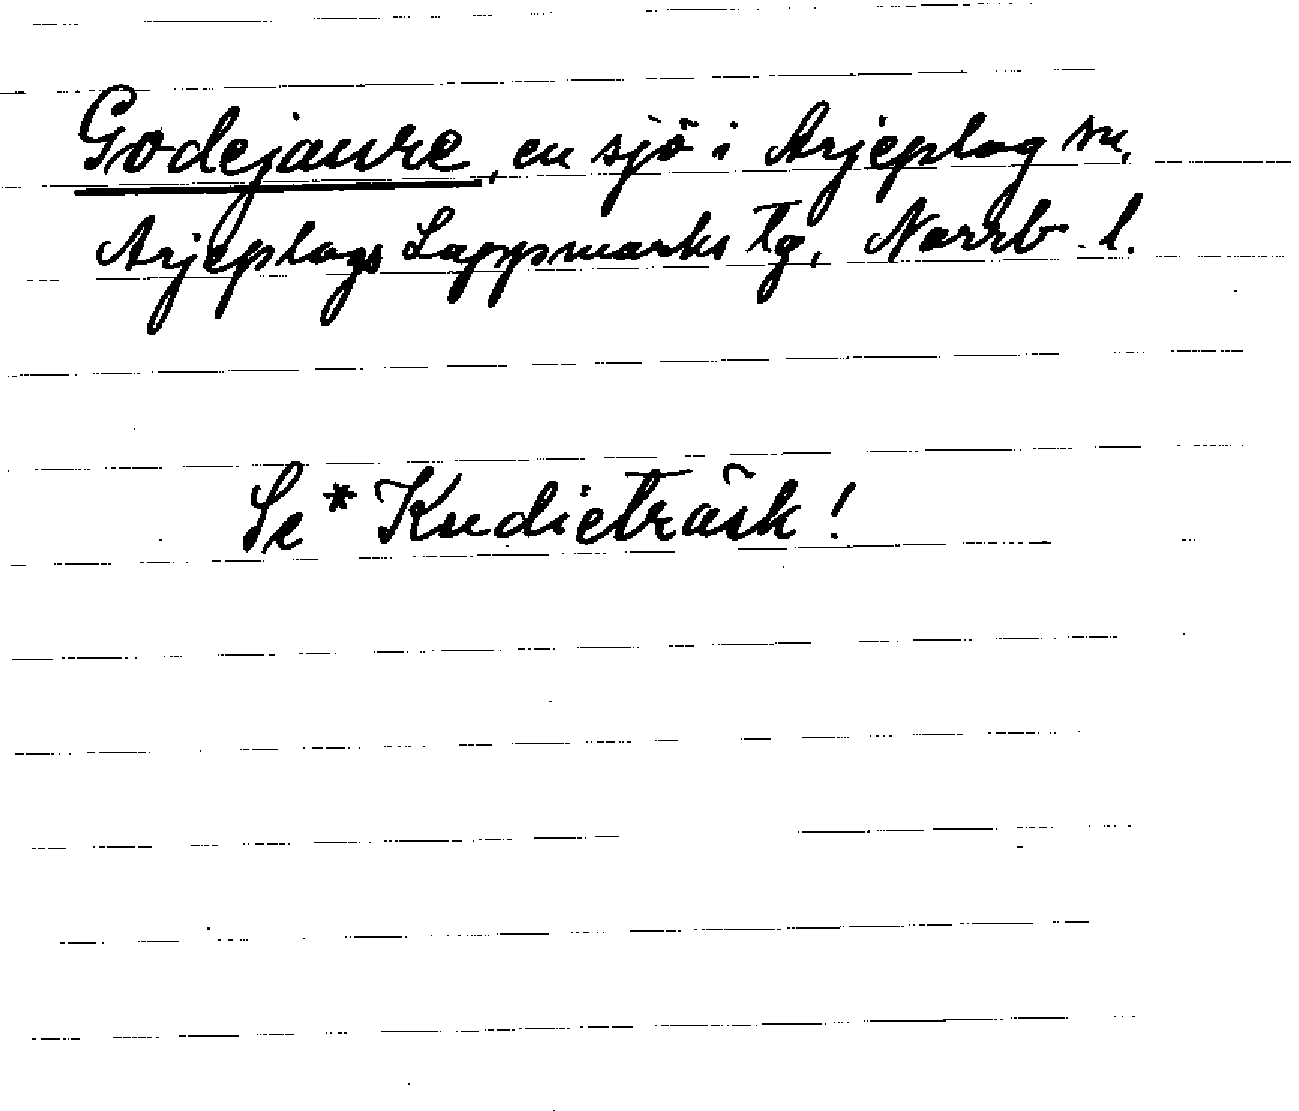 Godejaure, en sjö i Arjeplog sn,
Arjeplogs Lappmarks tg, Norrb. l.
Se * Kudieträsk!